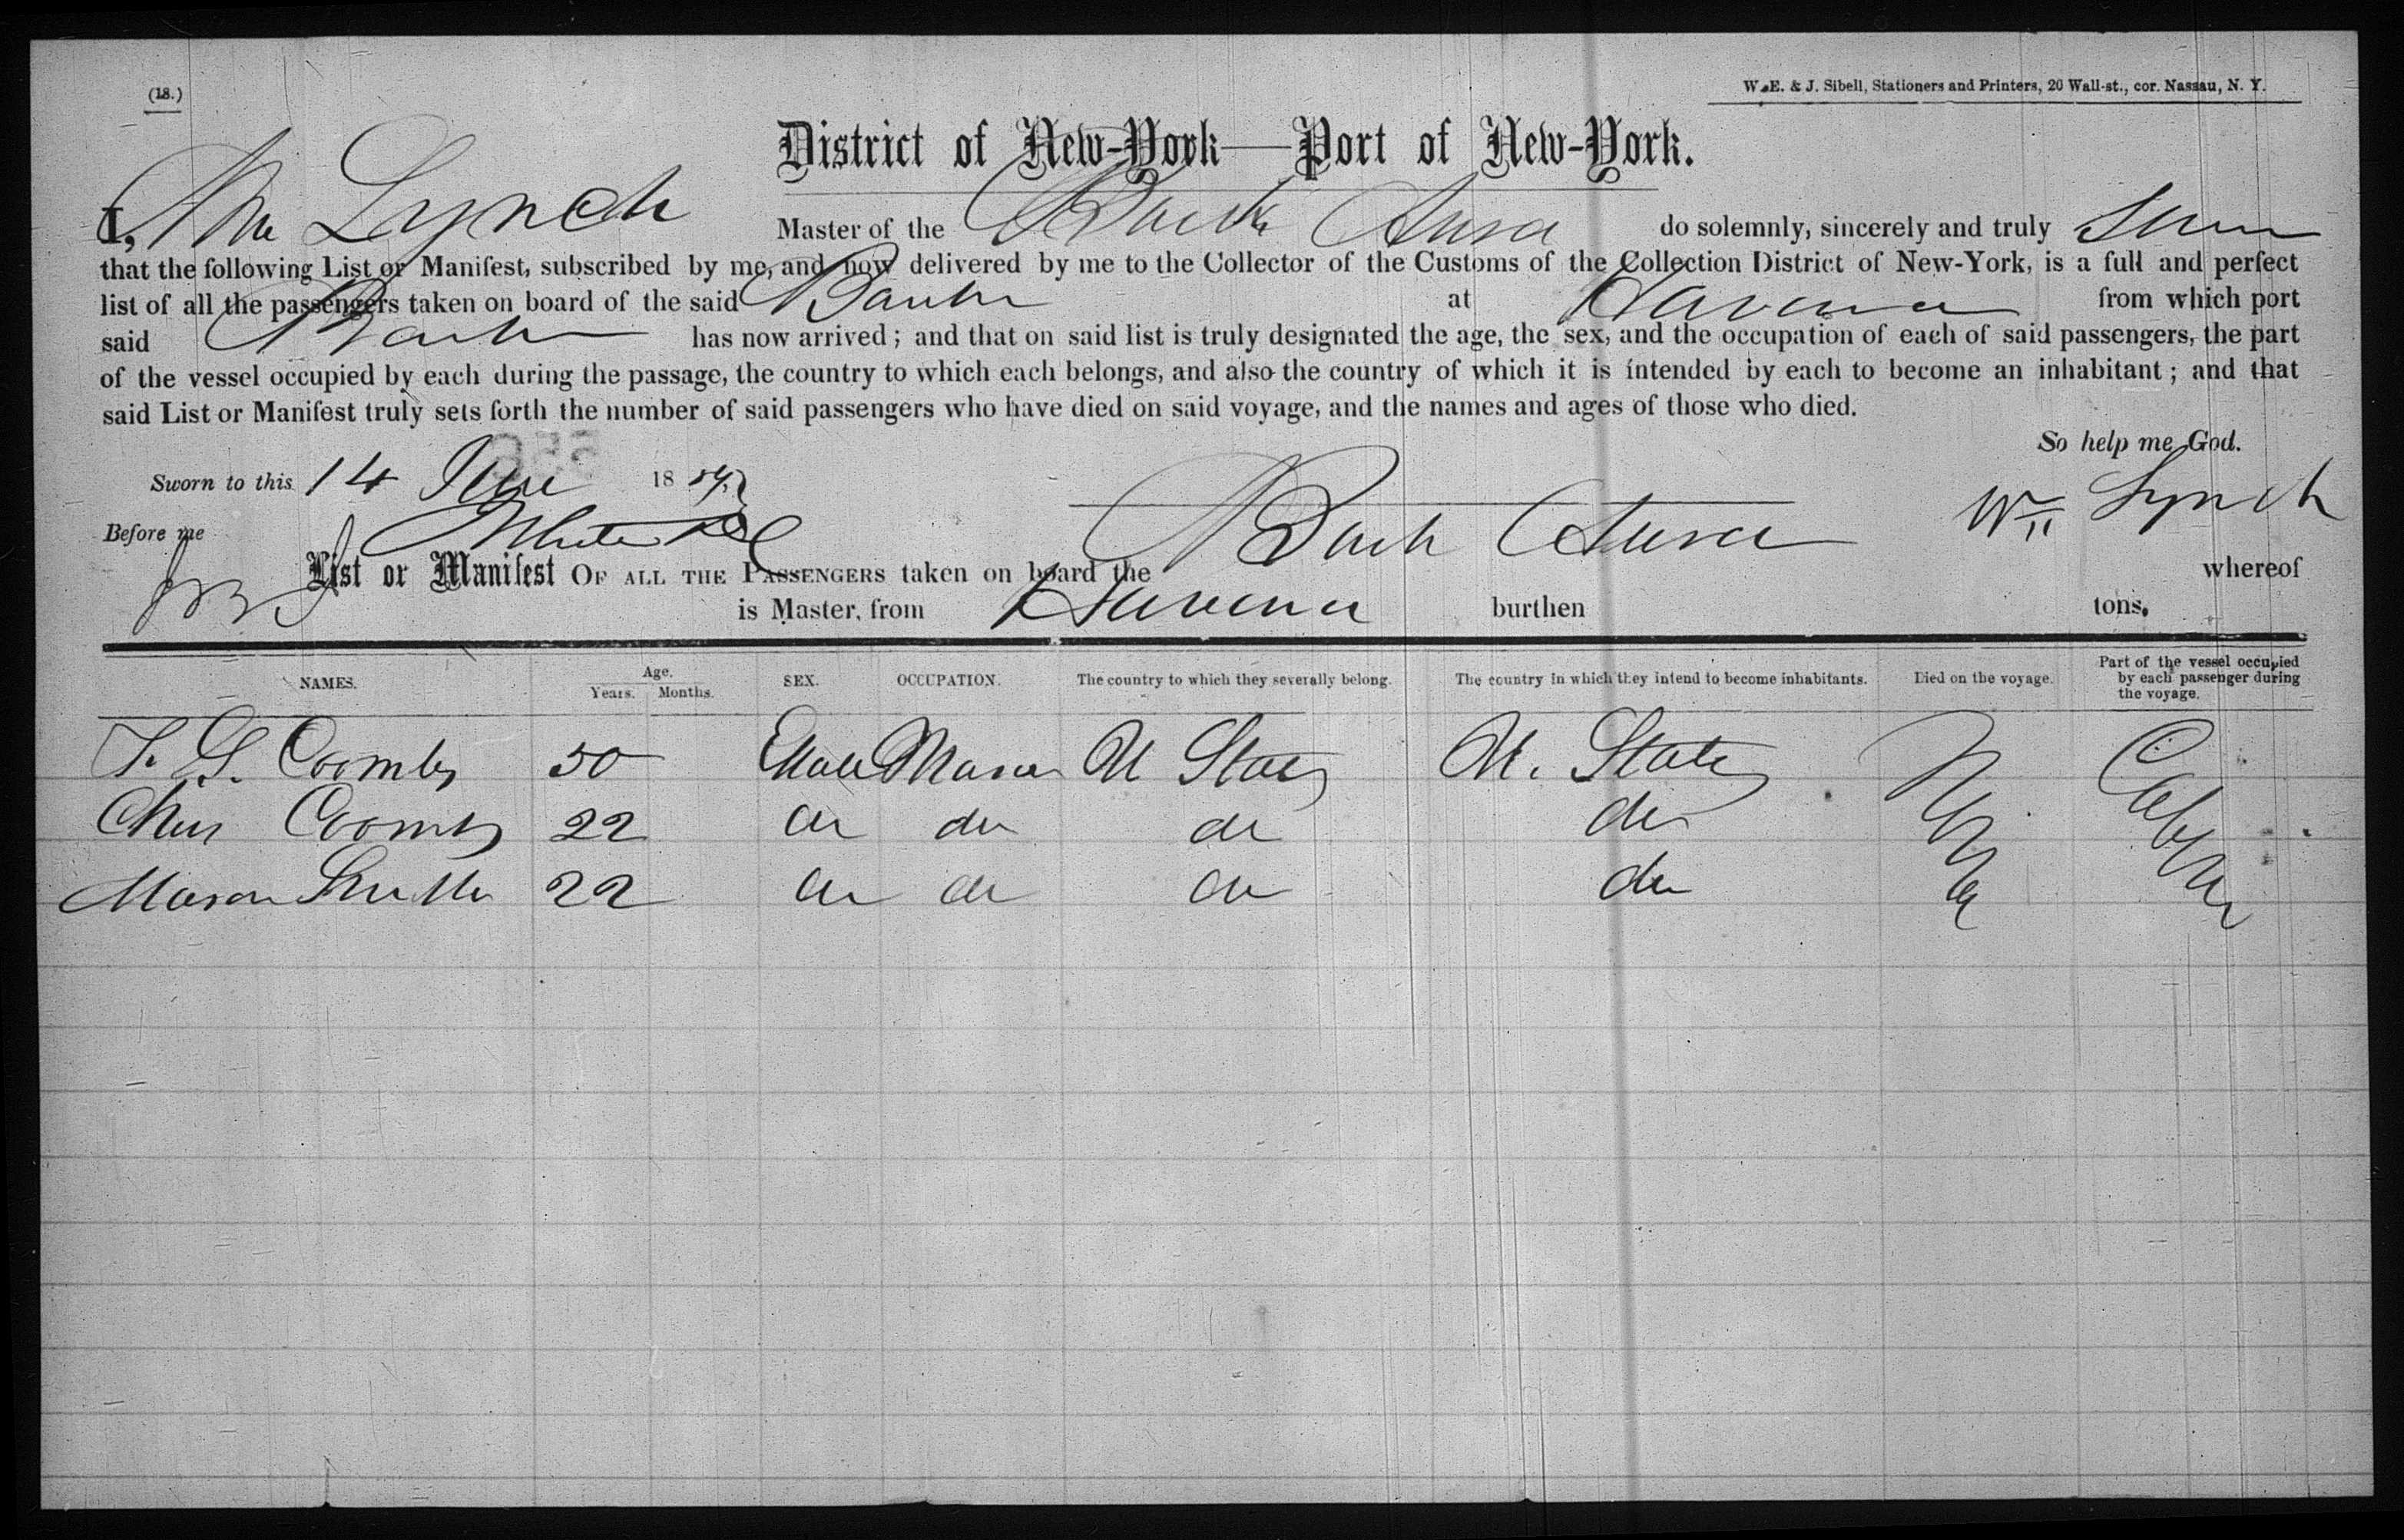 (18.)
W. E. & J. Sibell, Stationers and Printers, 20 Wall-st., cor. Nassau, N. Y.
District of New-York—Port of New-York.
I, Wm Lynch Master of the Bark do solemnly, sincerely and truly
that the following List or Manifest, subscribed by me, and now delivered by me to the Collector of the Customs of the Collection District of New-York, is a full and perfect
list of all the passengers taken on board of the said Bark at Havana from which port
said Bark has now arrived; and that on said list is truly designated the age, the sex, and the occupation of each of said passengers, the part
of the vessel occupied by each during the passage, the country to which each belongs, and also the country of which it is intended by each to become an inhabitant; and that
said List or Manifest truly sets forth the number of said passengers who have died on said voyage, and the names and ages of those who died.
So help me God.
Sworn to this 14 June 18
Wm Lynch
Before me
List or Manifest OF ALL THE PASSENGERS taken on board the Bark whereof
is Master, from Havana burthen tons.
NAMES. Age. Years. Months. SEX. OCCUPATION. The country to which they severally belong. The country in which they intend to become inhabitants. Died on the voyage. Part of the vessel occupied by each passenger during the voyage.
Coombs 50 Male U States U. States
Coombs 22 do do do do
22 do do do do